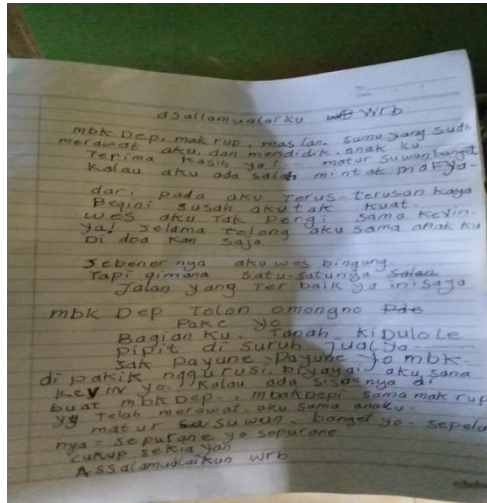 asallamualarku WrB
mbk Dep, mak rup, mas lan. sumu yang sudh
merawat aku, dan mendidik, anak ku
Terima kasih ya! matur suwun banget
Kalau aku ada salah mintak maf ya-
dari pada aku Terus-terusan kaya
Begini susah aku tak kuat.
wes aku Tak pergi sama Kevin.
ya! selama tolong aku sama anak ku
Di doa kan saja
Sebener nya aku wes bingung.
Tapi gimana satu-satunya
Jalan yang Ter baik ya ini saja
mbk Dep Tolon omongno
Pake yo
Bagian ku. Tanah kidulo le
pipit di suruh Jual ya-
Sak payune-payune yo mbk-
di pakik ngurusi. biyayai. aku sana
KeVIN yo. Kalau ada sisa nya di
buat mbk Dep-, mbak Depi sama mak rup
yg Telah merawat. aku sama anaku-
matur suwun. banget yo-
nya- sepurane yo sepurane
cukup sekia yan
Assalamualaikun wrb